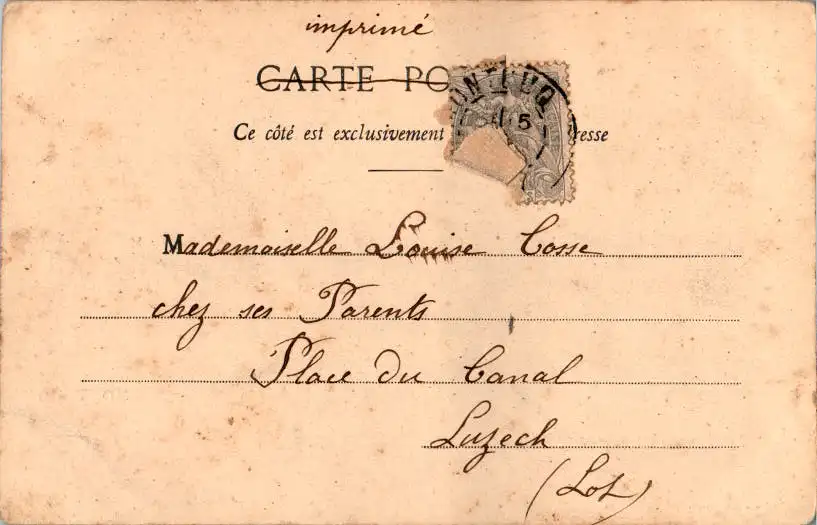 imprimé
CARTE PO
Ce côté est exclusivement resse
Mademoiselle Louise Cosse
chez ses Parents
Place du Canal
Luzech
(Lot)